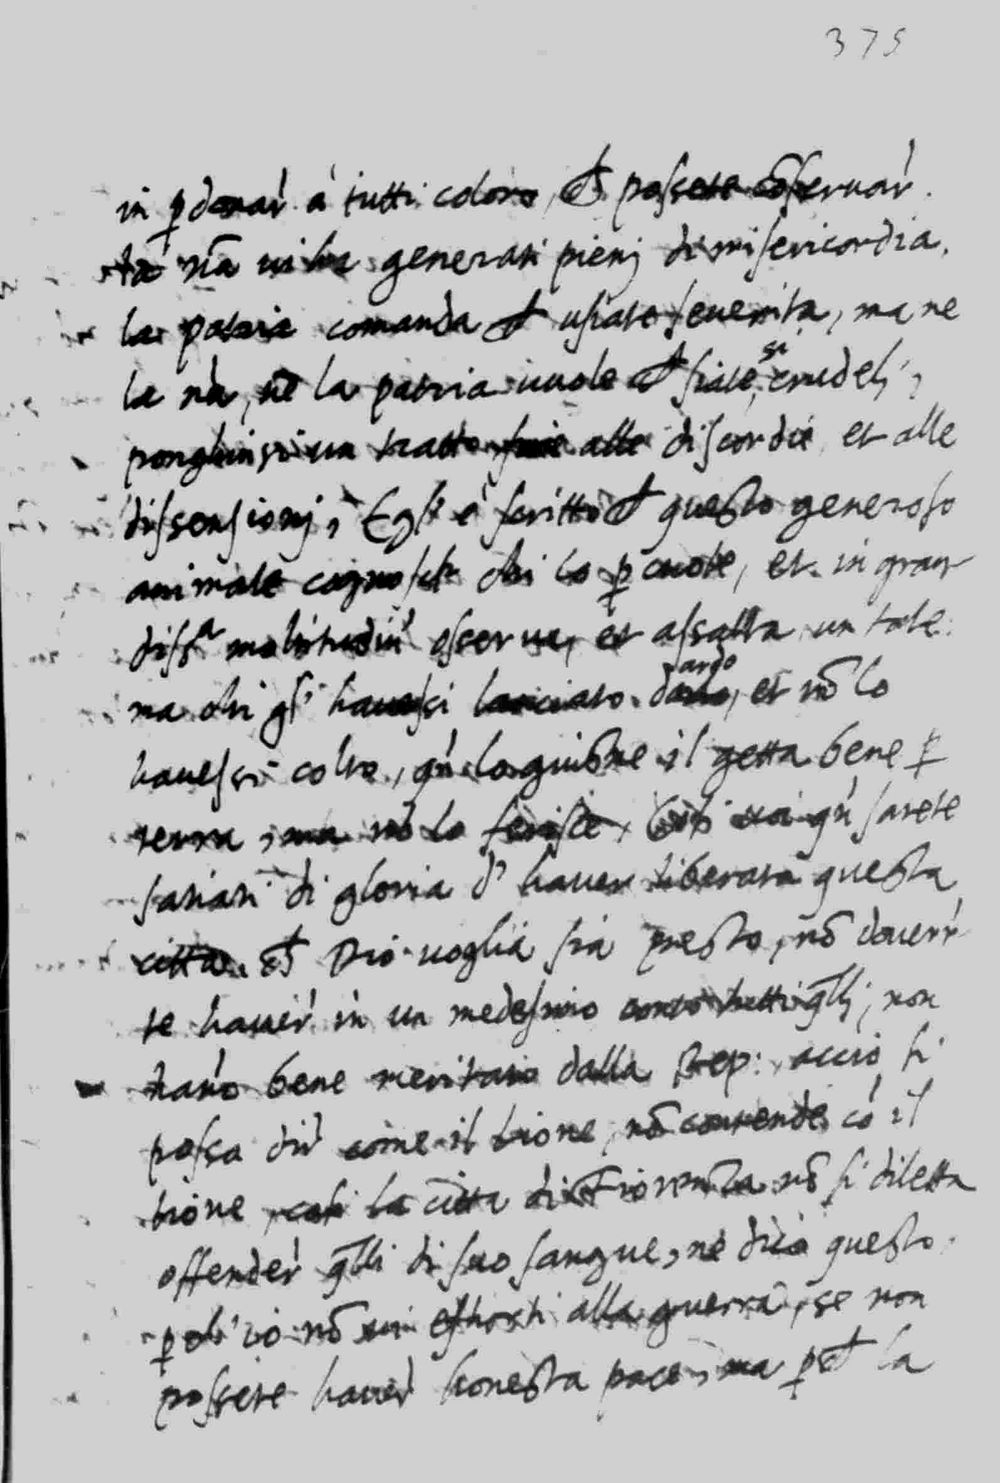 375
in ꝑdonar à tutti coloro, ch possete conseruar.
la nrã ui ha generati pienj di misericordia,
la patria comanda ch usiate seuerita, ma ne
la nrã, ne la patria uuole ch siate si crudelj,
ponghinsi un tratto fine alle discordie, et alle
dissensionj, Egli è scritto ch questo generoso
animale cognosce chi lo ꝑcuote, et in gran
dissa moltitudine osserua, et assalta un tale.
ma chi gli hauessi lanciato dardo, et nõ lo
hauessi colto, il getta bene ꝑ
terra, ma nõ lo ferisce, Così uoi qñ sarete
satiati di gloria d' hauer liberata questa
citta, ch Dio uoglia sia presto, nõ douerr
te hauer in un medesimo conto tutti qlli, non
hano bene meritato dalla Rep: acciò si
possa dir come il lione, nõ contende cõ il
lione, così la citta di Fiorenza nõ si diletta
offender qlli di suo sangue, ne dico questo
ꝑchè io nõ ui esshorti alla guerra, se non
possete hauer honesta pace, ma ꝑch la